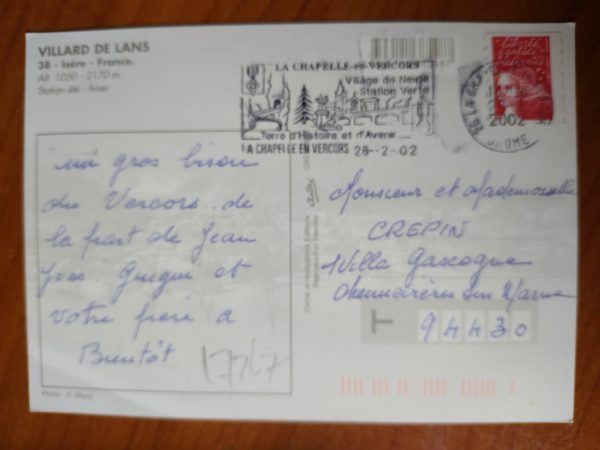 VILLARD DE LANS
38 - Isère - France.
Alt. 1050 - 2170 m
Station été - hiver
LA CHAPELLE-en-VERCORS
Village de Neige
Station Verte
Terre d'Histoire et d'Avenir
LA CHAPELLE EN VERCORS 28-2-02
2002
DROME
un gros bisou
du Vercors de
la part de Jean
Yves Guigui et
votre frère a
Bientôt
17267
Monsieur et Mademoiselle
CREPIN
1 Villa Gascogne
Chennevières sur Marne
T 94430
Reproduction interdite
Photo : P. Blanc